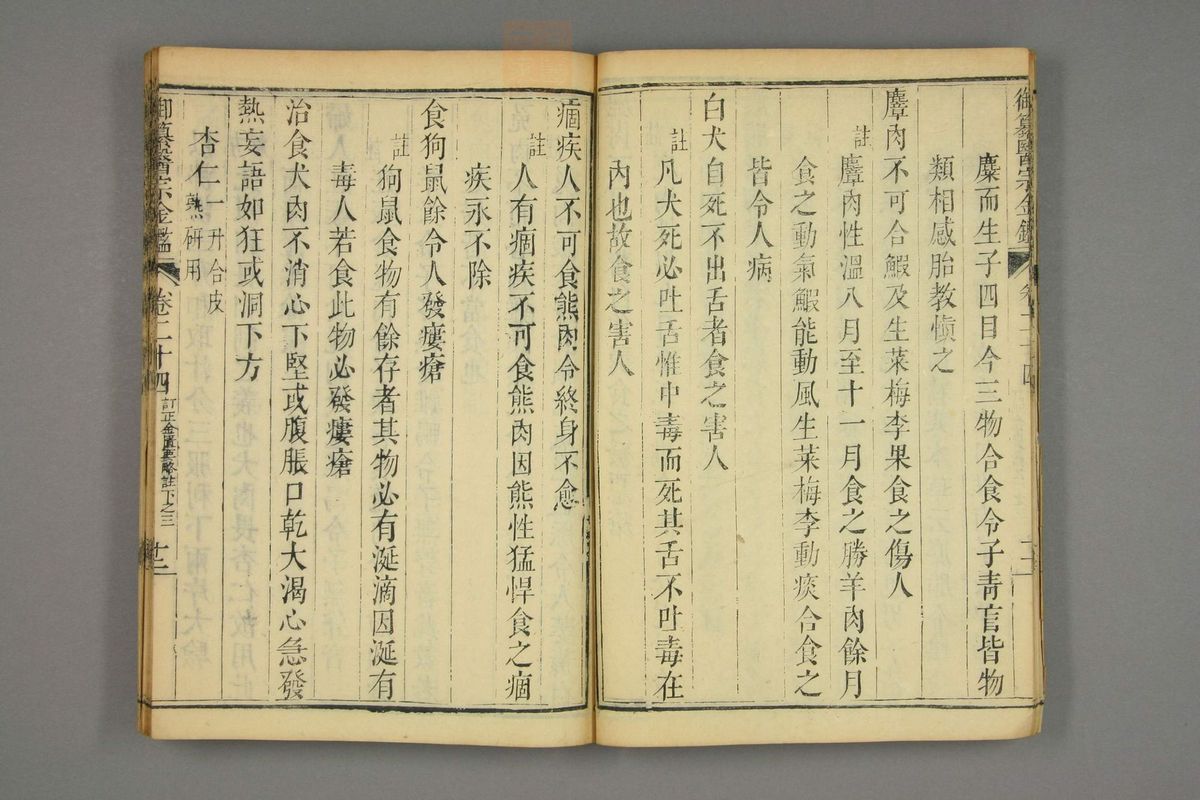 麋而生子四目今三物合食令子青盲皆物
類相感胎教愼之
麞肉不可合鰕及生菜梅李果食之傷人
註 麞肉性溫八月至十一月食之勝羊肉餘月
食之動氣鰕能動風生菜梅李動痰合食之
皆令人病
白犬自死不出舌者食之害人
註 凡犬死必吐舌惟中毒而死其舌不吐毒在
內也故食之害人
痼疾人不可食熊肉令終身不愈
註 人有痼疾不可食熊肉因熊性猛悍食之痼
疾永不除
食狗鼠餘令人發瘻瘡
註 狗鼠食物有餘存者其物必有涎滴因涎有
毒人若食此物必發瘻瘡
治食犬肉不消心下堅或腹脹口乾大渴心急發
熱妄語如狂或洞下方
杏仁一升合皮熟研用
御纂醫宗金鑑 卷二十四 訂正金匱要略註下之三 十二